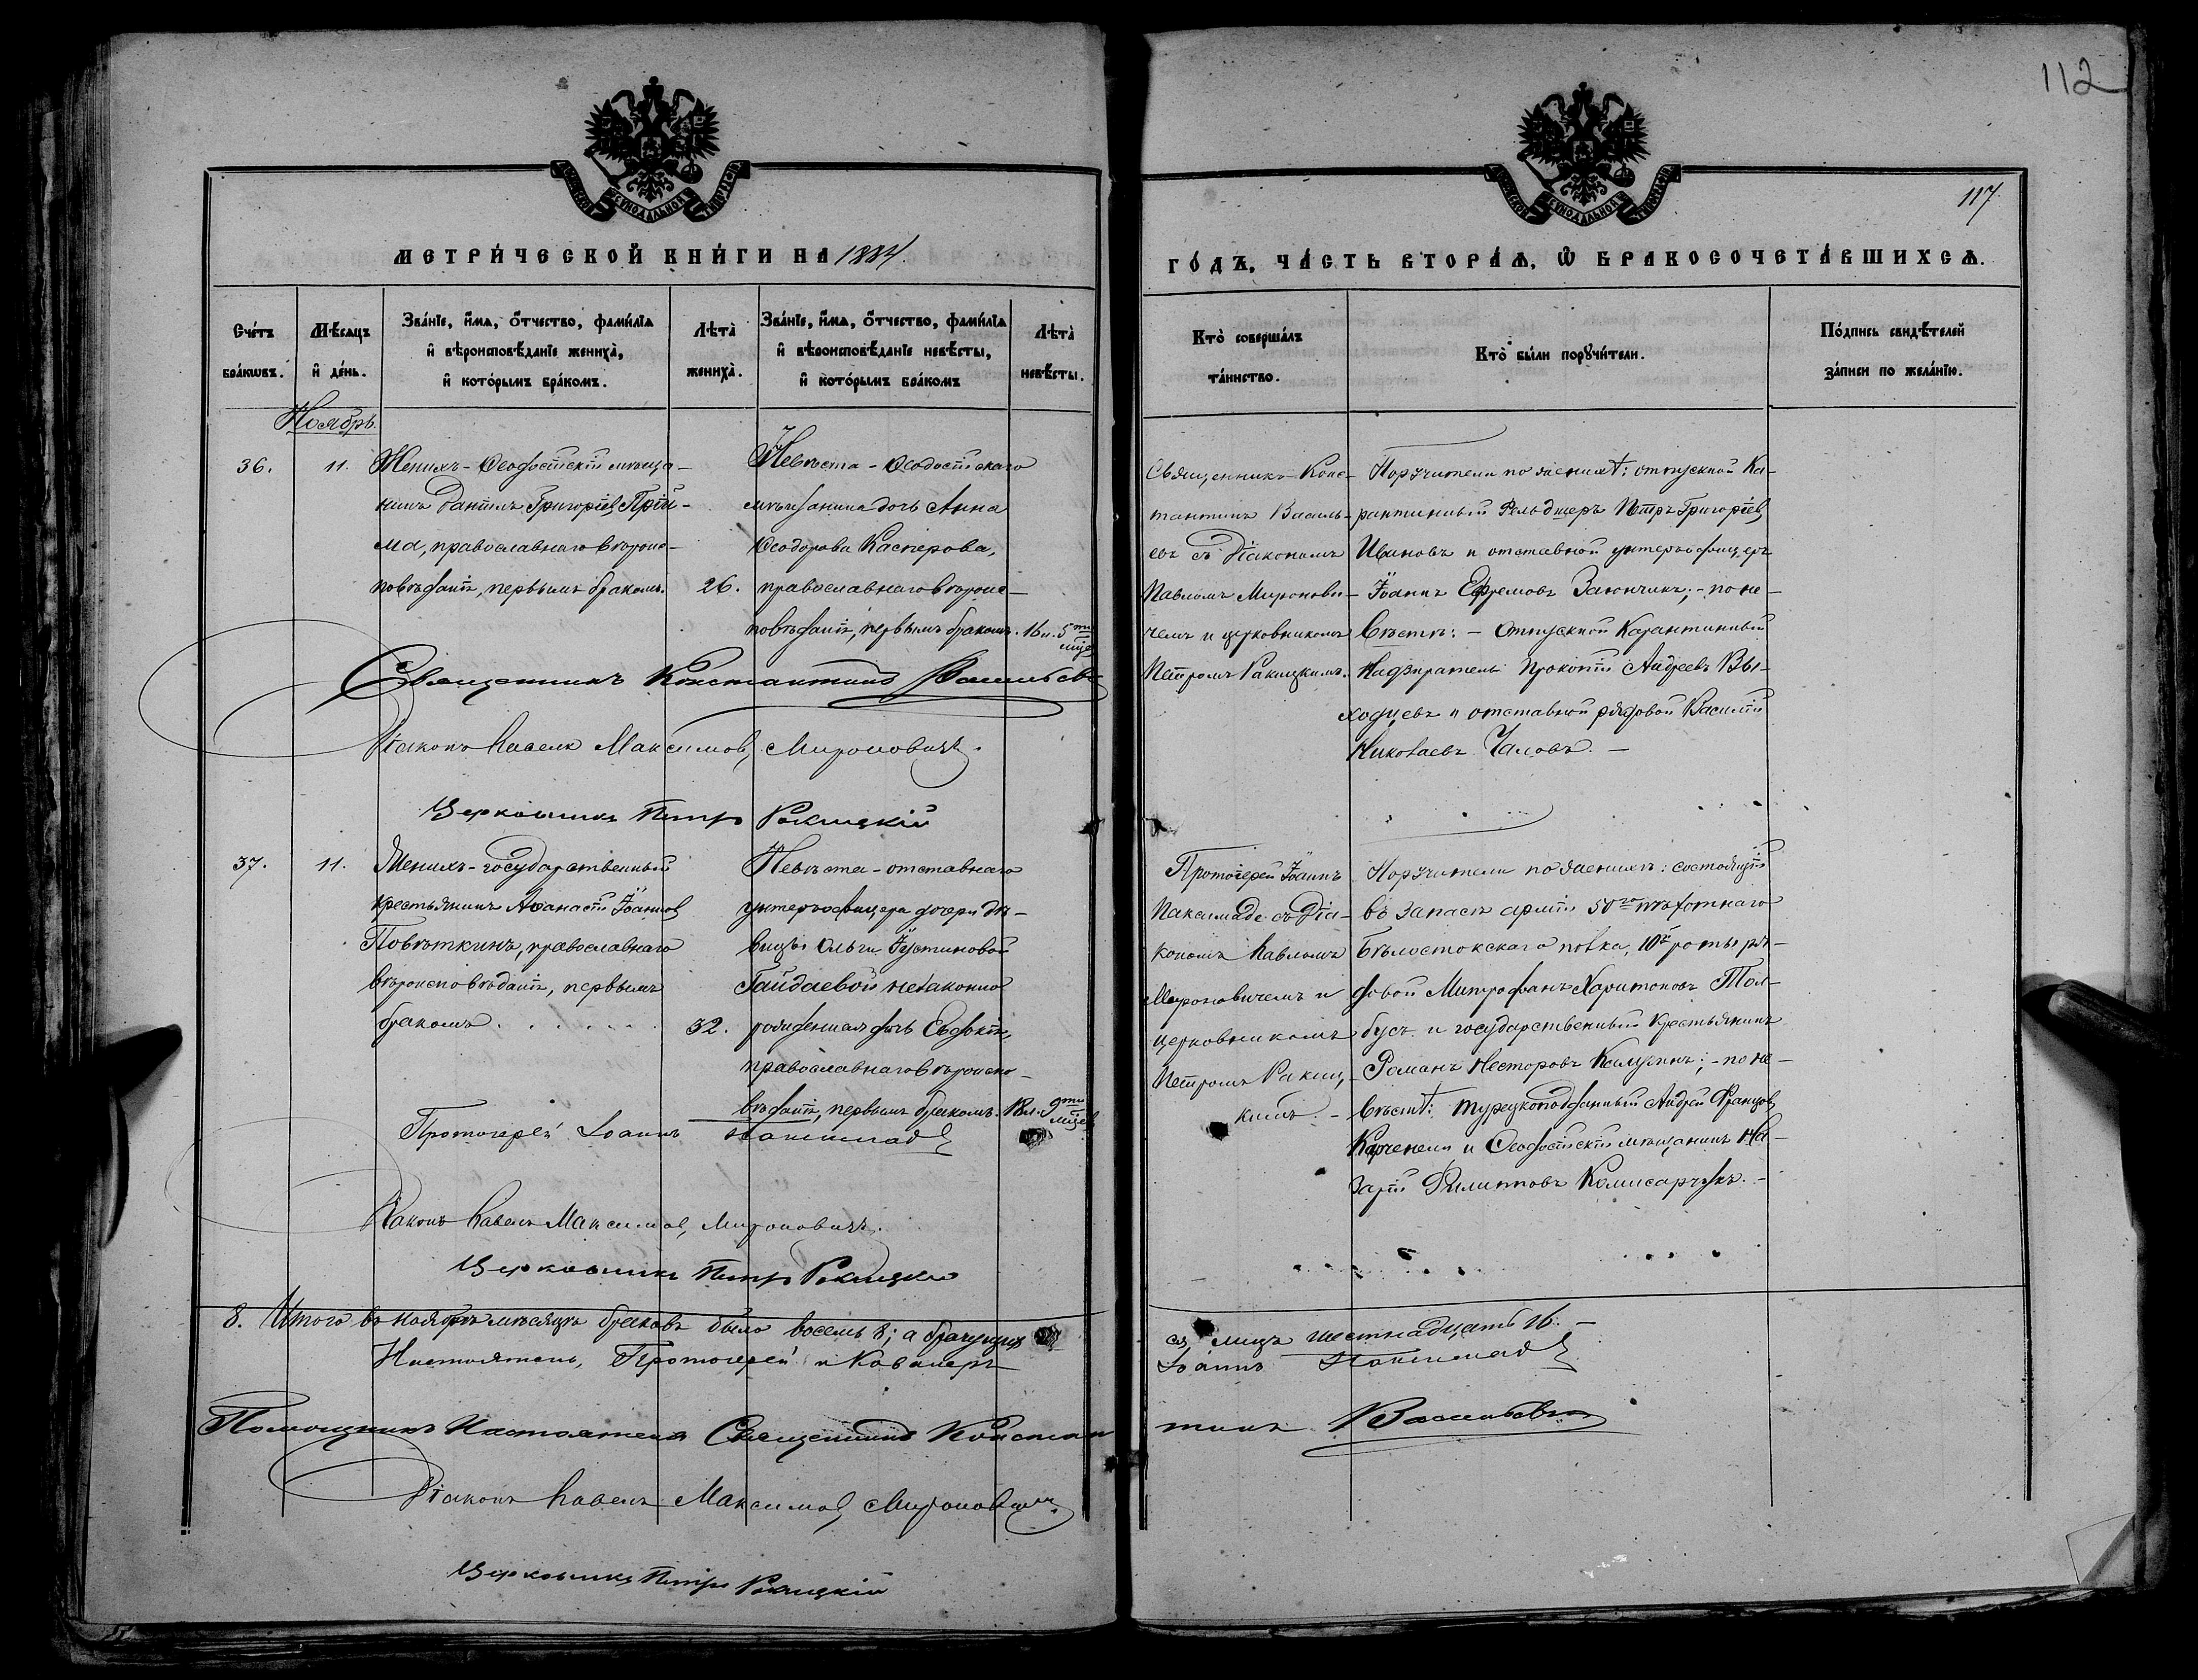 112
117
МЕТРИЧЕСКОЙ КНИГИ НА 1884
ГОДЪ, ЧАСТЬ ВТОРАЯ, Ѡ БРАКОСОЧЕТАВШИХСЯ.
Счетъ браковъ.
Мѣсяцъ и день.
Званіе, имя, отчество, фамилія
и вѣроисповѣданіе жениха,
и которымъ бракомъ.
Лѣта
жениха.
Званіе, имя, отчество, фамилія
и вѣроисповѣданіе невѣсты,
и которымъ бракомъ
Лѣта
невѣсты.
Кто совершалъ
таинство.
Кто были поручители.
Подпись свидѣтелей
записи по желанію.
Ноябрь.
36.
11.
Женихъ - Ѳеодосійскій мѣща-
нинъ Даніилъ Григоріевъ Прій-
ма, православнаго вѣроис-
повѣданія, первымъ бракомъ.
26.
Невѣста - Ѳеодосійскаго
мѣщанина дочь Анна
Ѳеодорова Касперова,
православнаго вѣроис-
повѣданія, первымъ бракомъ.
16 л. 5ти
мцев
Священникъ Конс-
тантинъ Василь-
евъ съ Діакономъ
Павломъ Миронови-
чемъ и церковникомъ
Петромъ Ракицкимъ.
Поручители по женихѣ: отпускной Ка-
рантинный Фельдшеръ Петръ Григоріевъ
Ивановъ и отставной унтерофицеръ
Іоаннъ Ефремовъ Заіончикъ; - по не-
вѣстѣ: - Отпускной Карантинный
Надзиратель Прокопій Андреевъ Вы-
ходцевъ и отставной рядовой Василій
Николаевъ Чаловъ. -
Священникъ Константинъ Васильевъ
Діаконъ Павелъ Максимовъ Мироновичъ.
Церковникъ Петръ Ракицкій
37.
11.
Женихъ - государственный
крестьянинъ Аѳанасій Іоанновъ
Повѣткинъ, православнаго
вѣроисповѣданія, первымъ
бракомъ
32.
Невѣста - отставнаго
унтерофицера дочери дѣ-
вицы Ольги Іустиновой
Гайдаевой незаконно
рожденная дочь Евдокія,
православнаго вѣроиспо-
вѣданія, первымъ бракомъ.
18 л. 9ти
мцев
Протоіерей Іоаннъ
Паксимаде съ Діа-
кономъ Павломъ
Мироновичемъ и
церковникомъ
Петромъ Ракиц-
кимъ. -
Поручители по женихѣ: состоящій
въ запасѣ арміи 50го пѣхотнаго
Бѣлостокскаго полка, 10й роты ря-
довой Митрофанъ Харитоновъ Тол-
бусъ и государственный крестьянинъ
Романъ Несторовъ Калугинъ; - по не-
вѣстѣ: Турецкоподданный Андрей Францовъ
Карченели и Ѳеодосійскій мѣщанинъ На-
зарій Филипповъ Комисарчукъ. -
Протоіерей Іоаннъ Паксимаде
Діаконъ Павелъ Максимовъ Мироновичъ.
Церковникъ Петръ Ракицкій
8. Итого въ ноябрѣ мѣсяцѣ браковъ было восемь 8; а брачущих
ся лицъ шестнадцать 16. -
Настоятель, Протоіерей и Кавалеръ
Іоаннъ Паксимаде
Помощникъ Настоятеля Священникъ Констан
тинъ Васильевъ
Діаконъ Павелъ Максимовъ Мироновичъ.
Церковникъ Петръ Ракицкій